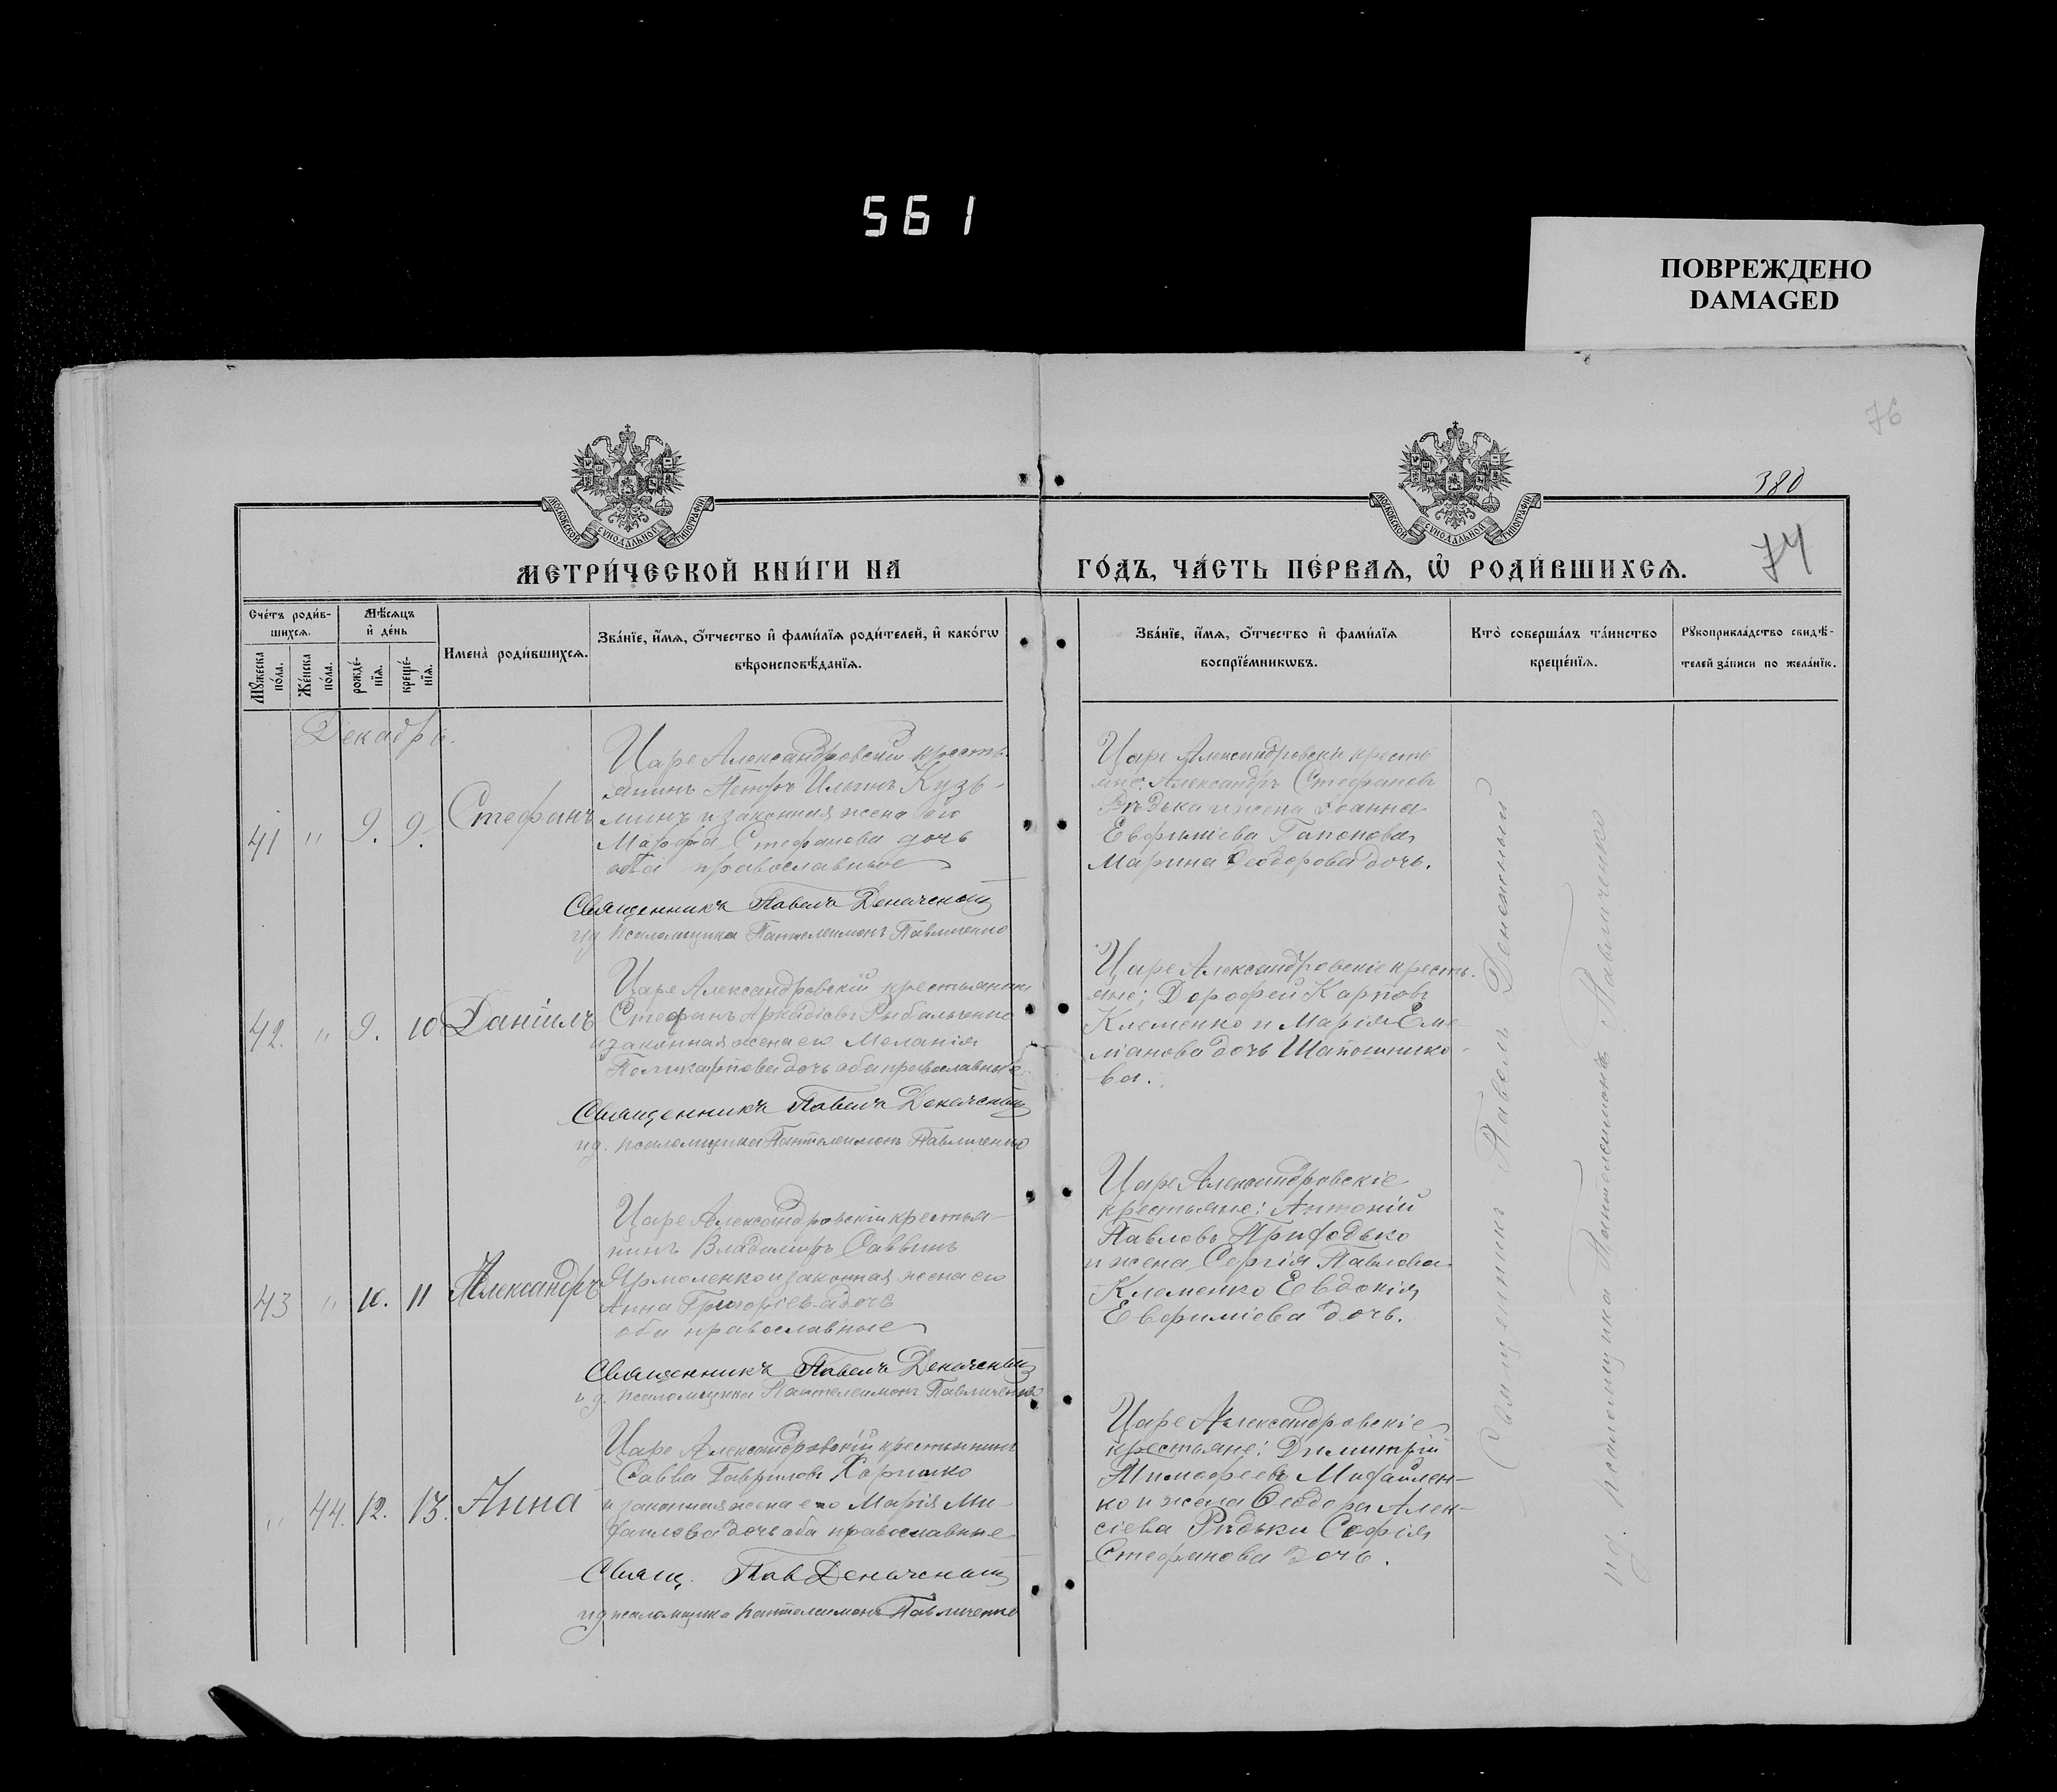 561
ПОВРЕЖДЕНО
DAMAGED
76
380
74
МОСКОВСКОЙ СУНОДАЛЬНОЙ ТИПОГРАФІИ
МОСКОВСКОЙ СУНОДАЛЬНОЙ ТИПОГРАФІИ
МЕТРИ́ЧЕСКОЙ КНИ́ГИ НА
ГО́ДЪ, ЧА́СТЬ ПЕ́РВАѦ, Ѡ҆ РОДИ́ВШИХСѦ.
Сче́тъ роди́в-
шихсѧ.
Мѣ́сѧцъ
и҆ де́нь
Мꙋ́жеска
по́ла.
Же́нска
по́ла.
рожде́-
нїѧ.
креще́-
нїѧ.
Имена̀ роди́вшихсѧ.
Зва́нїе, и҆́мѧ, ѻ҆́тчество и҆ фами́лїѧ роди́телей, и҆ како́гѡ
вѣроисповѣ́данїѧ.
Зва́нїе, и҆́мѧ, ѻ҆́тчество и҆ фами́лїѧ
воспрїе́мникѡвъ.
Кто̀ соверша́лъ та́инство
креще́нїѧ.
Рꙋкоприкла́дство свидѣ́-
телей за́писи по жела́нїю.
Декабрь.
41 " 9. 9. Стефанъ
Царе Александровскій кресть-
янинъ Петръ Ильинъ Кузь-
минъ и законная жена его
Марфа Стефанова дочь
оба православные
Священникъ Павелъ
ид псаломщика Пантелеимонъ Павличенко
Царе Александровскіе кресть
яне: Александръ Стефановъ
Рѣдька и жена Іоанна
Евфиміева Гапонова,
Марина Ѳеодорова дочь.
42. " 9. 10 Даніилъ
Царе Александровскій крестьянинъ
Стефанъ Аркадіевъ Рыбальченко
и законная жена его Меланія
Поликарпова дочь оба православные
Священникъ Павелъ
ид. псаломщика Пантелеимонъ Павличенко
Царе Александровскіе кресть-
яне; Дорофей Карповъ
Клеменко и Марія Еме
ліанова дочь Шапошнико-
ва.
43 " 10. 11 Александръ
Царе Александровскій крестья-
нинъ Владимиръ Саввинъ
Ярмоленко и законная жена его
Анна Григоріева дочь
оба православные
Священникъ Павелъ
и д. псаломщика Пантелеимонъ Павличенко
Царе Александровскіе
крестьяне: Антоній
Павловъ Приходько
и жена Сергія Павлова
Клеменко Евдокія
Евфиміева дочь.
" 44. 12. 13. Анна
Царе Александровскій крестьянинъ
Савва Гавриловъ
и законная жена его Марія Ми-
хаилова дочь оба православные
Свящ. Пав
ид псаломщика Пантелеимонъ Павличенко
Царе Александровскіе
крестьяне: Димитрій
Тимофеевъ Михайлен-
ко и жена Ѳеодора Алек-
сіева Рѣдьки Софія
Стефанова дочь.
Священникъ Павелъ
ид. псаломщика Пантелеимонъ Павличенко